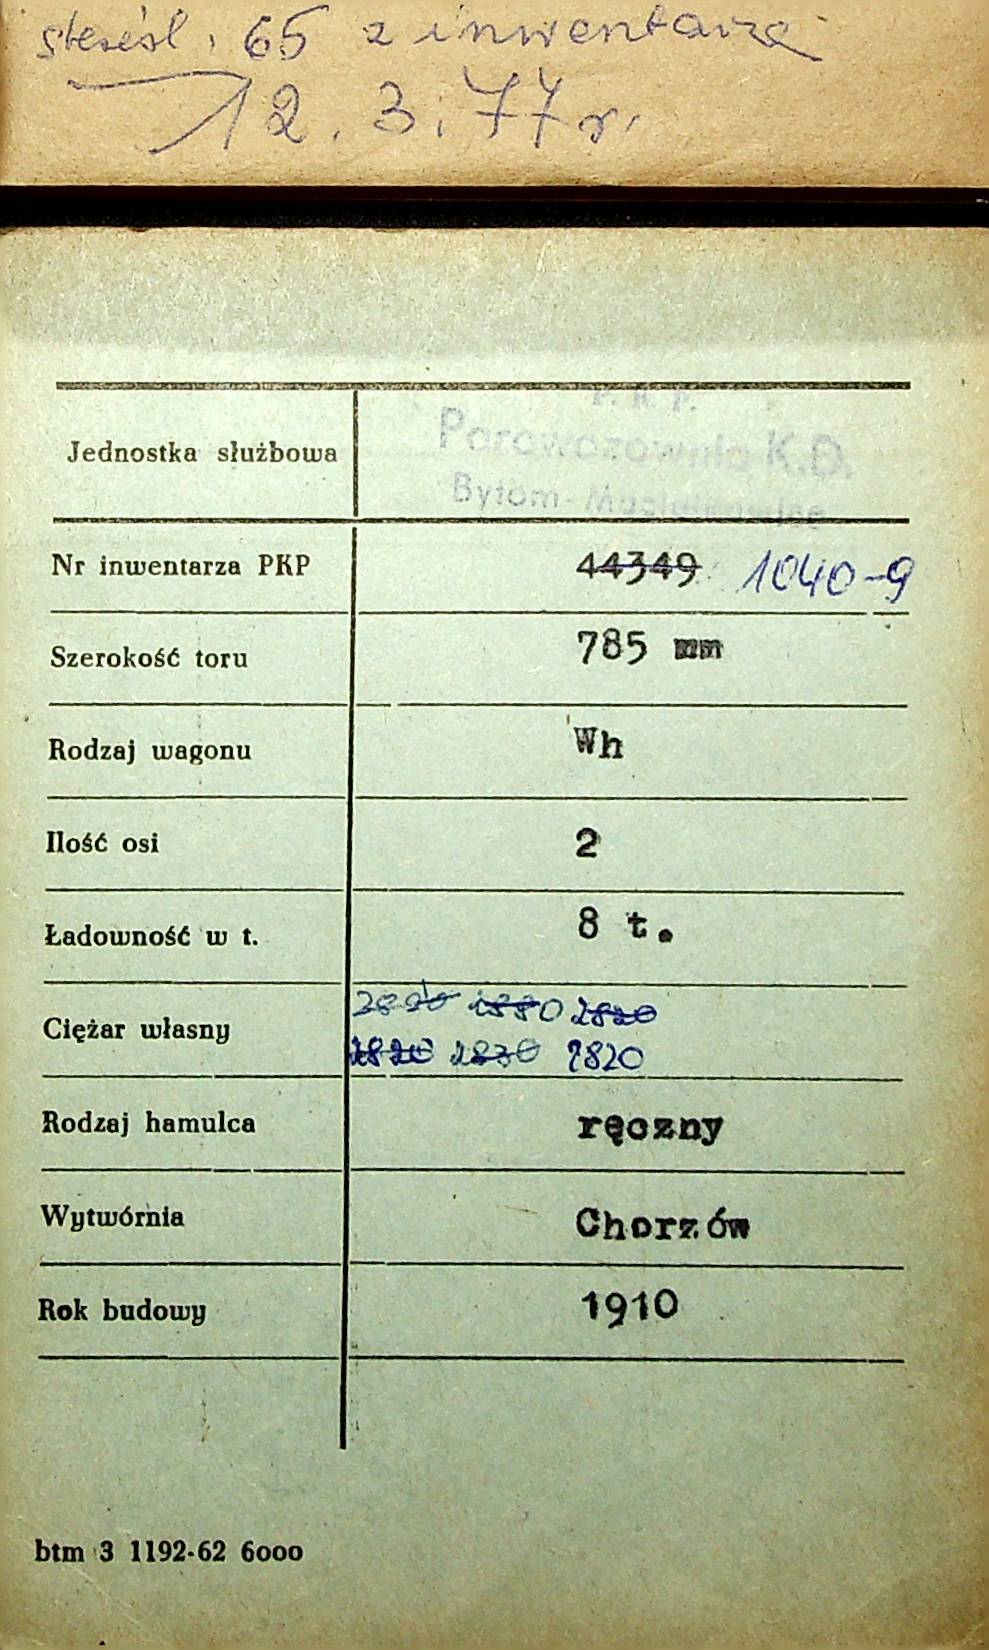 skreśl. 65 z inwentarza
12.3.77r.
P. K. P.
Parowozownia K.D.
Jednostka służbowa
Bytom-
Nr inwentarza PKP 44349 1040-9
Szerokość toru 785 mm
Rodzaj wagonu Wh
Ilość osi 2
Ładowność w t. 8 t.
2820
Ciężar własny
2830 2820
Rodzaj hamulca ręczny
Wytwórnia Chorzów
Rok budowy 1910
btm 3 1192-62 6000